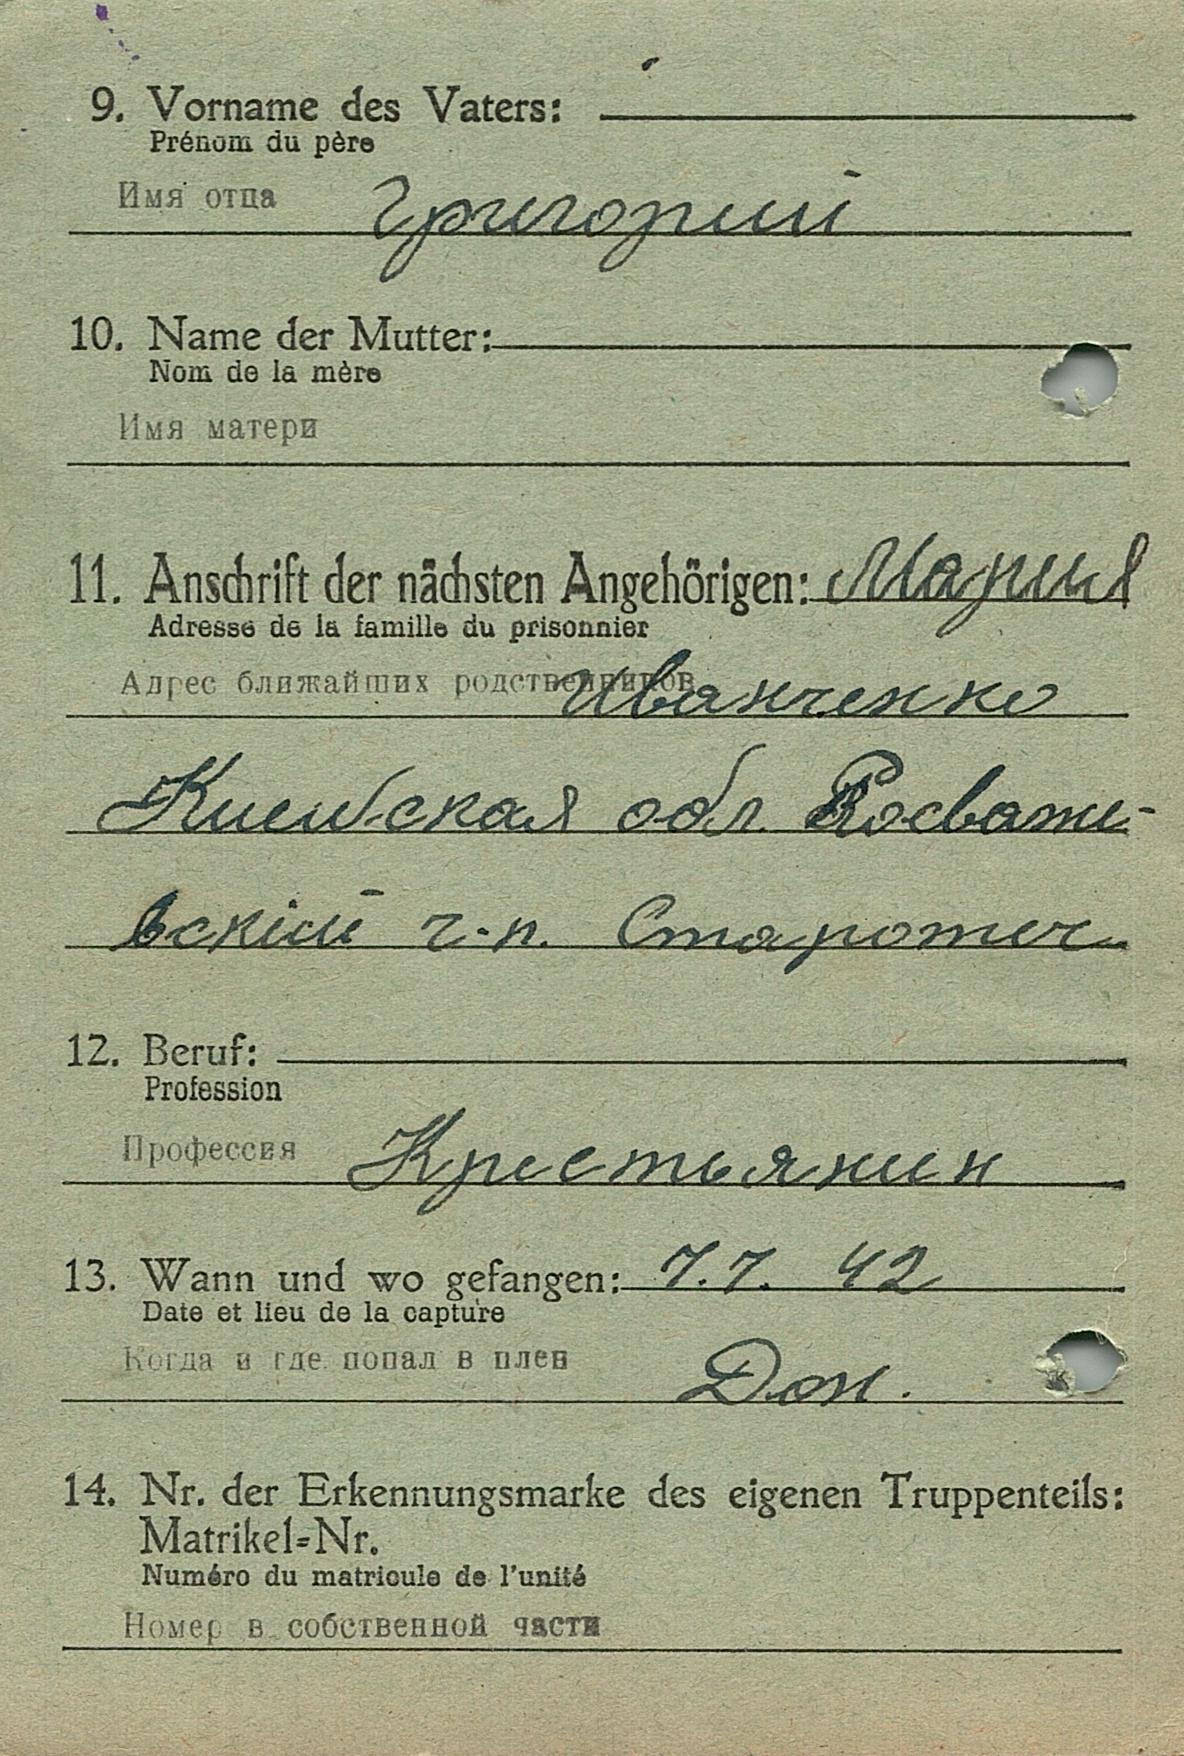 9. Vorname des Vaters:
Prénom du père
Имя отца Григорий
10. Name der Mutter:
Nom de la mère
Имя матери
11. Anschrift der nächsten Angehörigen: Мария
Adresse de la famille du prisonnier
Адрес ближайших родственников Иванченко
Киевская обл. Росваже-
вский г-п. Старо
12. Beruf:
Profession
Профессия Крестьянин
13. Wann und wo gefangen: 7.7. 42
Date et lieu de la capture
Когда и где попал в плен Дон.
14. Nr. der Erkennungsmarke des eigenen Truppenteils:
Matrikel-Nr.
Numéro du matricule de l'unité
Номер в собственной части